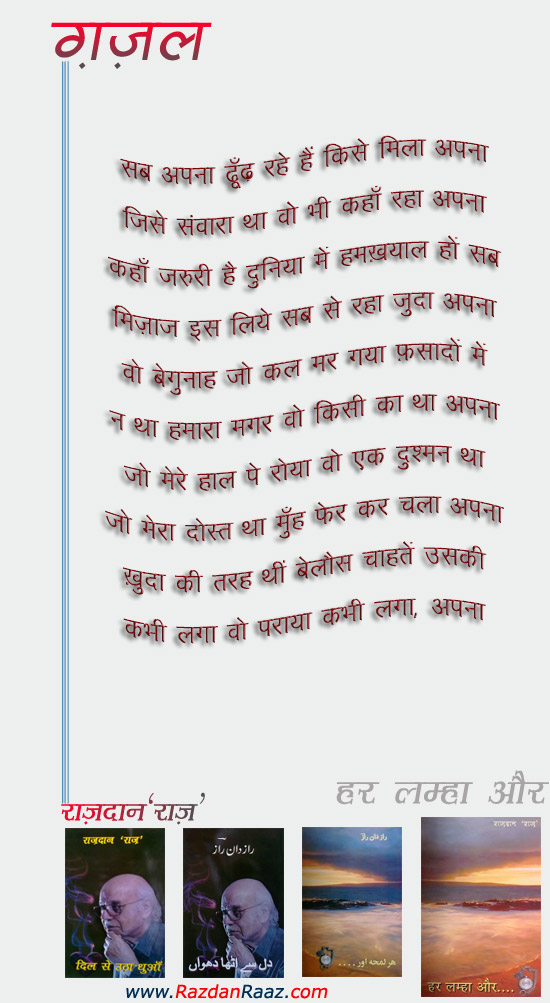 ग़ज़ल
सब अपना ढूँढ़ रहे हैं किसे मिला अपना
जिसे संवारा था वो भी कहाँ रहा अपना
कहाँ जरुरी है दुनिया में हमख़याल हों सब
मिज़ाज इस लिये सब से रहा जुदा अपना
वो बेगुनाह जो कल मर गया फ़सादों में
न था हमारा मगर वो किसी का था अपना
जो मेरे हाल पे रोया वो एक दुश्मन था
जो मेरा दोस्त था मुँह फेर कर चला अपना
ख़ुदा की तरह थीं बेलौस चाहतें उसकी
कभी लगा वो पराया कभी लगा, अपना
हर लम्हा और
राज़दान‘राज़’
राज़दान ‘राज़’
दिल से उठा धुआँ
راز دان راز
دل سے اٹھا دھواں
راز دان راز
ہر لمحہ اور....
राज़दान ‘राज़’
हर लम्हा और....
www.RazdanRaaz.com